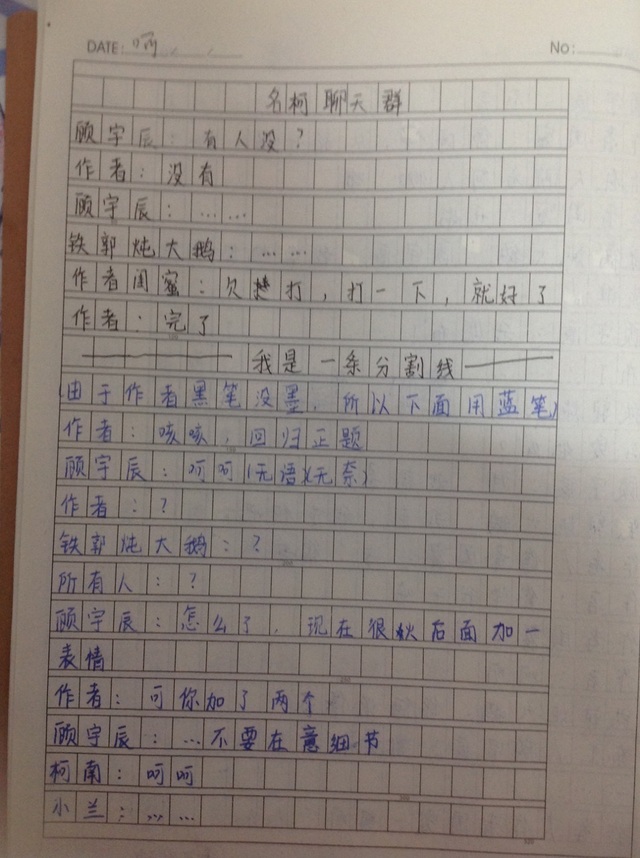 DATE: 呵
No:
名柯聊天群
顾宇辰：有人没？
作者：没有
顾宇辰：……
铁郭炖大鹅：……
作者闺蜜：欠揍打，打一下，就好了
作者：完了
我是一条分割线
（由于作者黑笔没墨，所以下面用蓝笔）
作者：咳咳，回归正题
顾宇辰：呵呵（无语）（无奈）
作者：？
铁郭炖大鹅：？
所有人：？
顾宇辰：怎么了，现在很火后面加一
表情
作者：可你加了两个
顾宇辰：…不要在意细节
柯南：呵呵
小兰：……